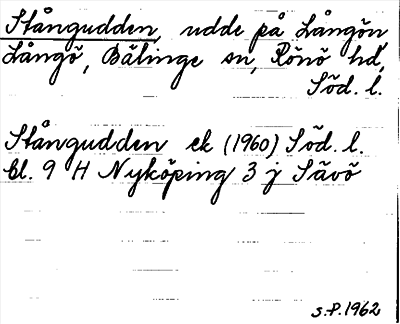 Stångudden, udde på Långön
Långö, Bälinge sn, Rönö hd,
Söd. l.
Stångudden ek (1960) Söd. l.
bl. 9 H Nyköping 3 j Sävö
S.P. 1962